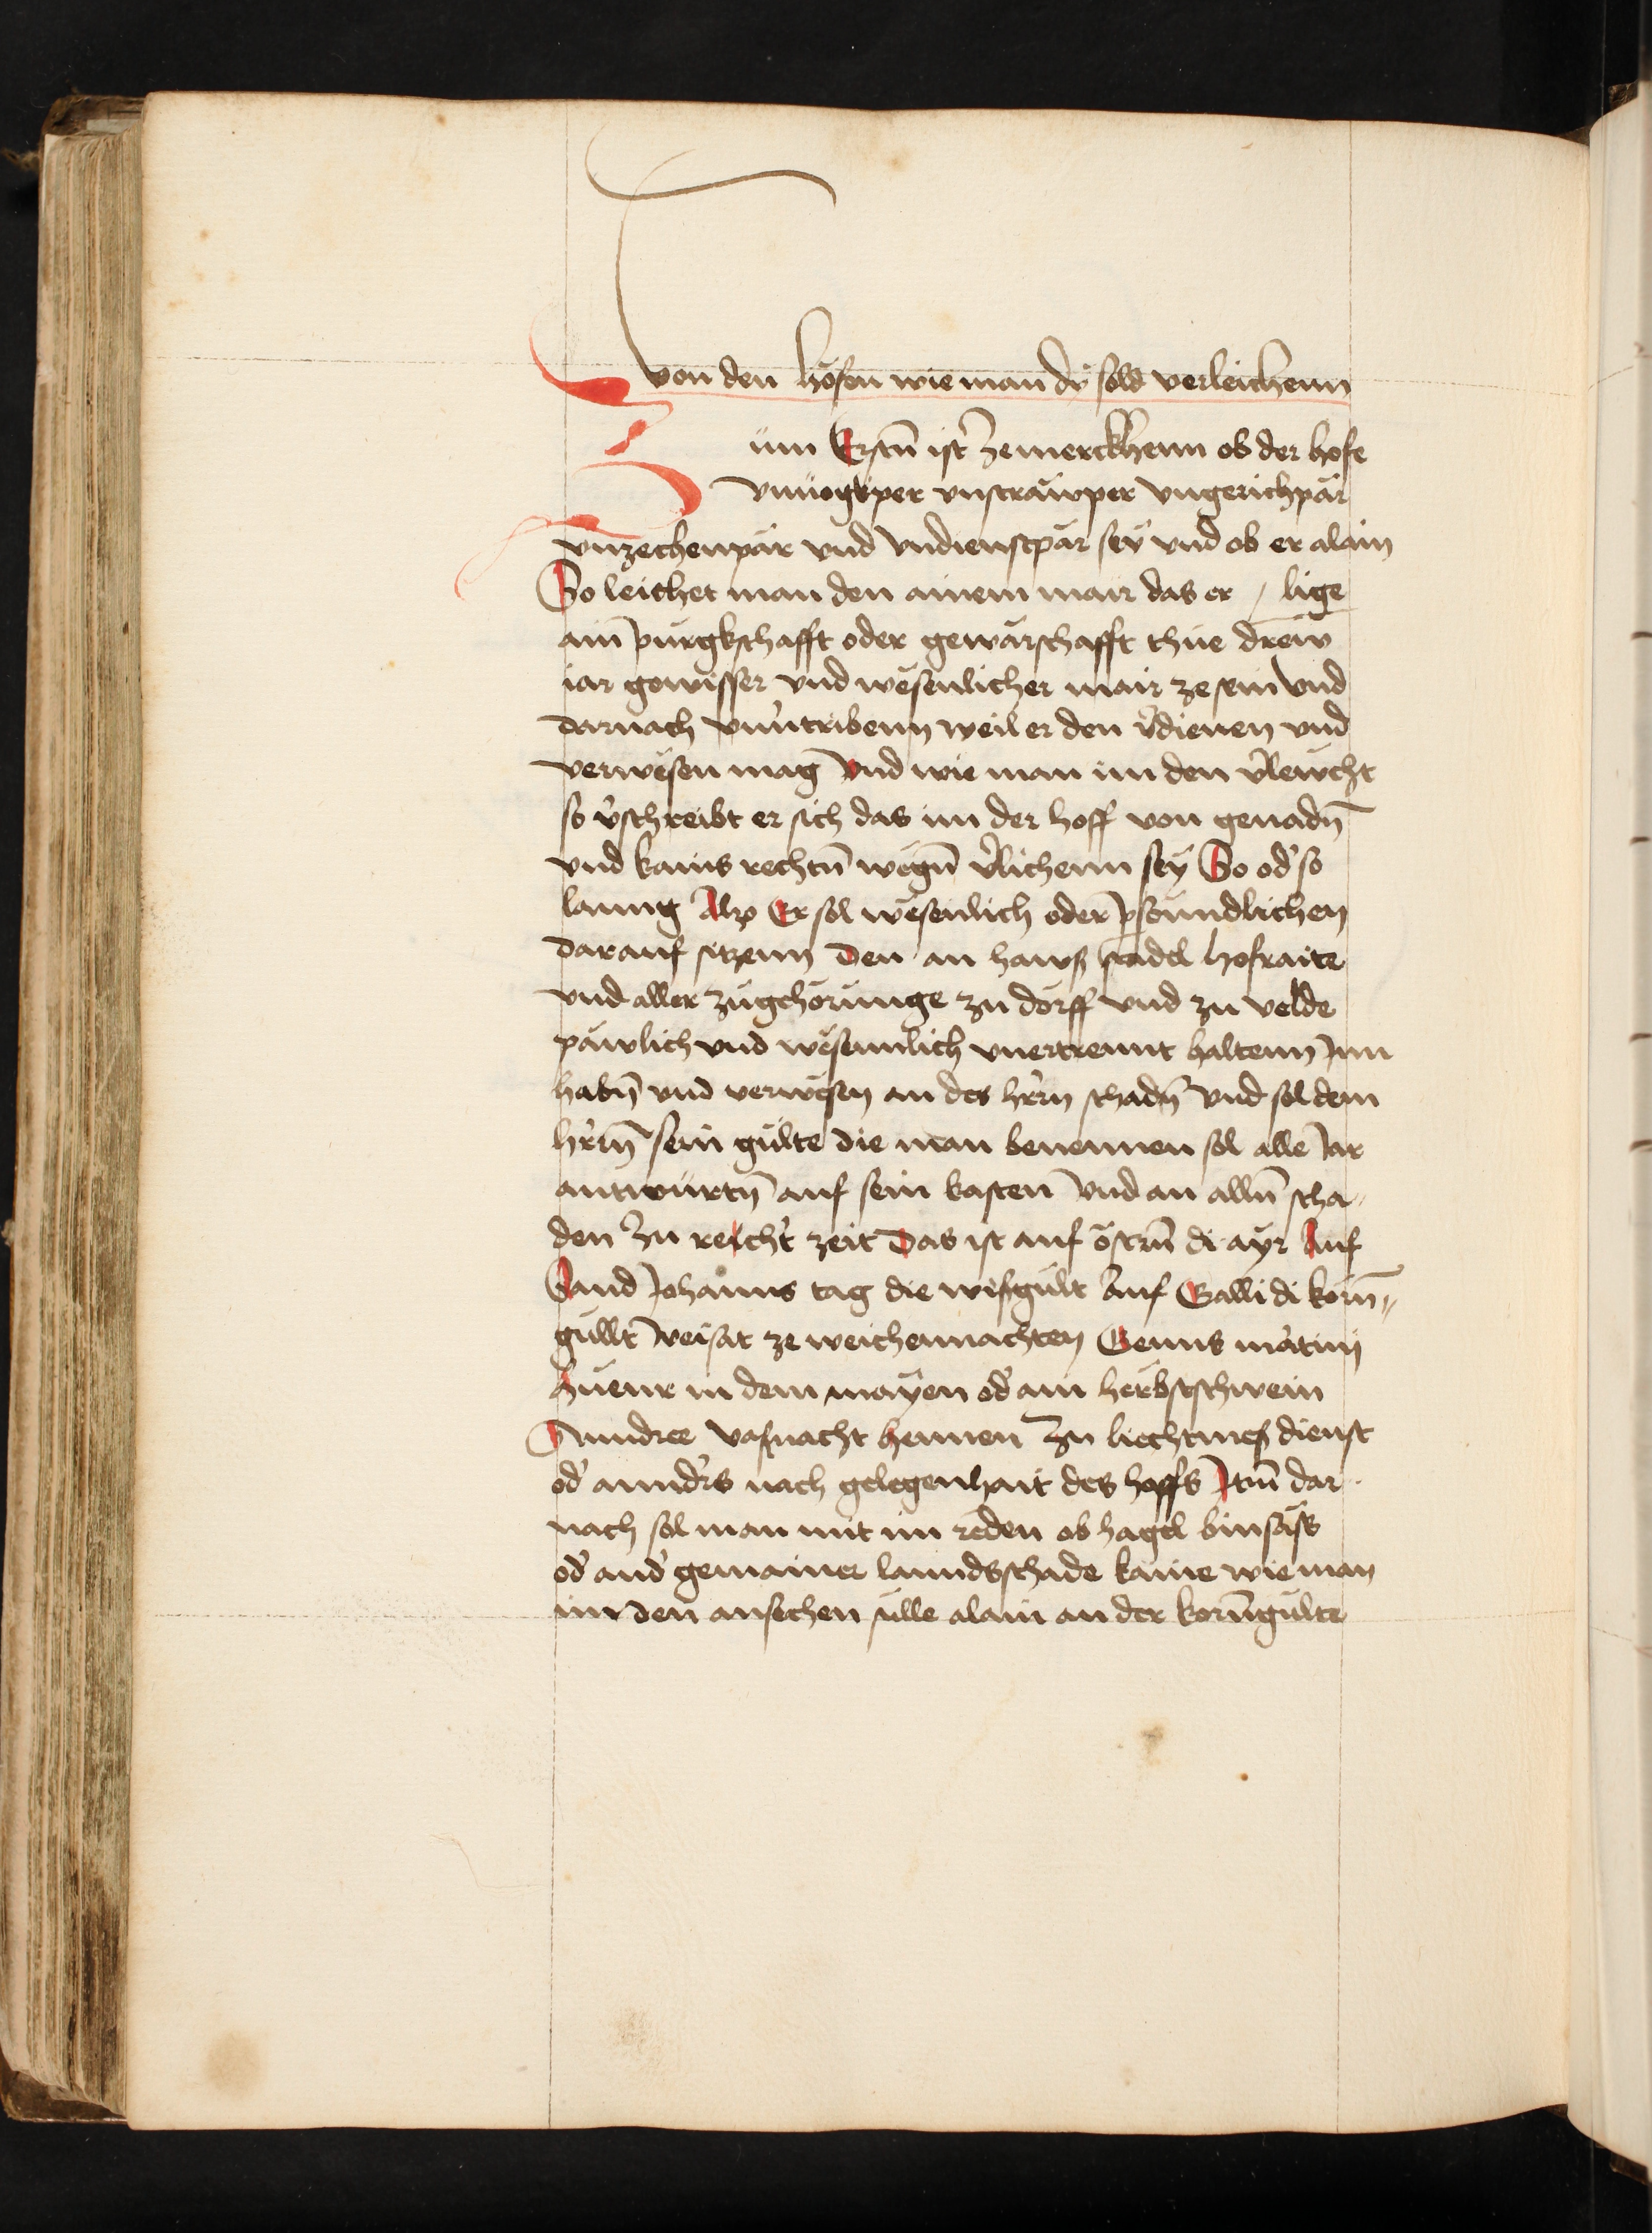 von den höfen wie man dy̎ sold verleichenn
Züm Erstn̄ ist Zemerckhenn ob der hofe
vnuogtper vnstrawper vngerichpär
vnzechenpär vnd vndienstpär seÿ vnd ob er alain
So leichet man den ainem mair das er / lige
ain pürgkschafft oder gewärschafft thüe dreẅ
iar gewisser vnd wësenlicher mair ze sein vnd
darnach vnu̓tribenn weil er den v̓dienen vnd
verwësen mag vnd wie man im den v̓lewcht
so v̓schreibt er sich das im der hoff von genadn̄
vnd kains rechtn̄ wegn̄ v̓lichenn seÿ So od̓ so
lanng Alz Er sol wesenlich oder p̱söundlichen
darauf sitzenn den an haws stadel hofraite
vnd aller zügehörünge zu dorff vnd zu velde
päwlich vnd wësennlich vnertrennt haltenn Inn
habn̄ vnd verwesen an des hr̓rn schadn̄ vnd sol dem
hr̓rn̄ sein gülte die man benennen sol alle Jar
antwürtn̄ auf sein kasten vnd an alln̄ scha⸗
den Zu recht̓ zeit Das ist auf östrn̄ di aÿr Auf
Sand Johanns tag die wisgült Auf Galli di korn̄⸗
güllt weisat ze weichennachten Genns martinj
hüenr in dem maÿen od̓ ain herbstschwein
Anndree vasnacht hennen Zu liechtmess dienst
od̓ annd̓rs nach gelegenhait des hoffs Itm̄ dar
nach sol man mit im reden ob hagel binsäß
od̓ and̓ gemainer lanndsschade käme wie man
im den ansechen sülle alain an der korn̄gülte